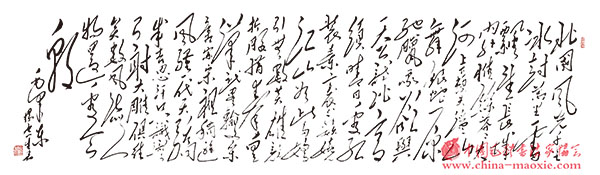 北国风光千里
冰封万里雪
飘望长城
内外惟余莽莽大
河上下顿失滔滔山
舞银蛇原
驰腊象欲与
天公试比高
须晴日看红
装素裹分外妖娆
江山如此多娇
引无数英雄竞
折腰惜秦皇
汉武略输文采
唐宗宋祖稍逊
风骚一代天骄成
吉思汗只识弯
弓射大雕俱往
矣数风流人
物还看今
朝
毛泽东
www.china-maoxie.com